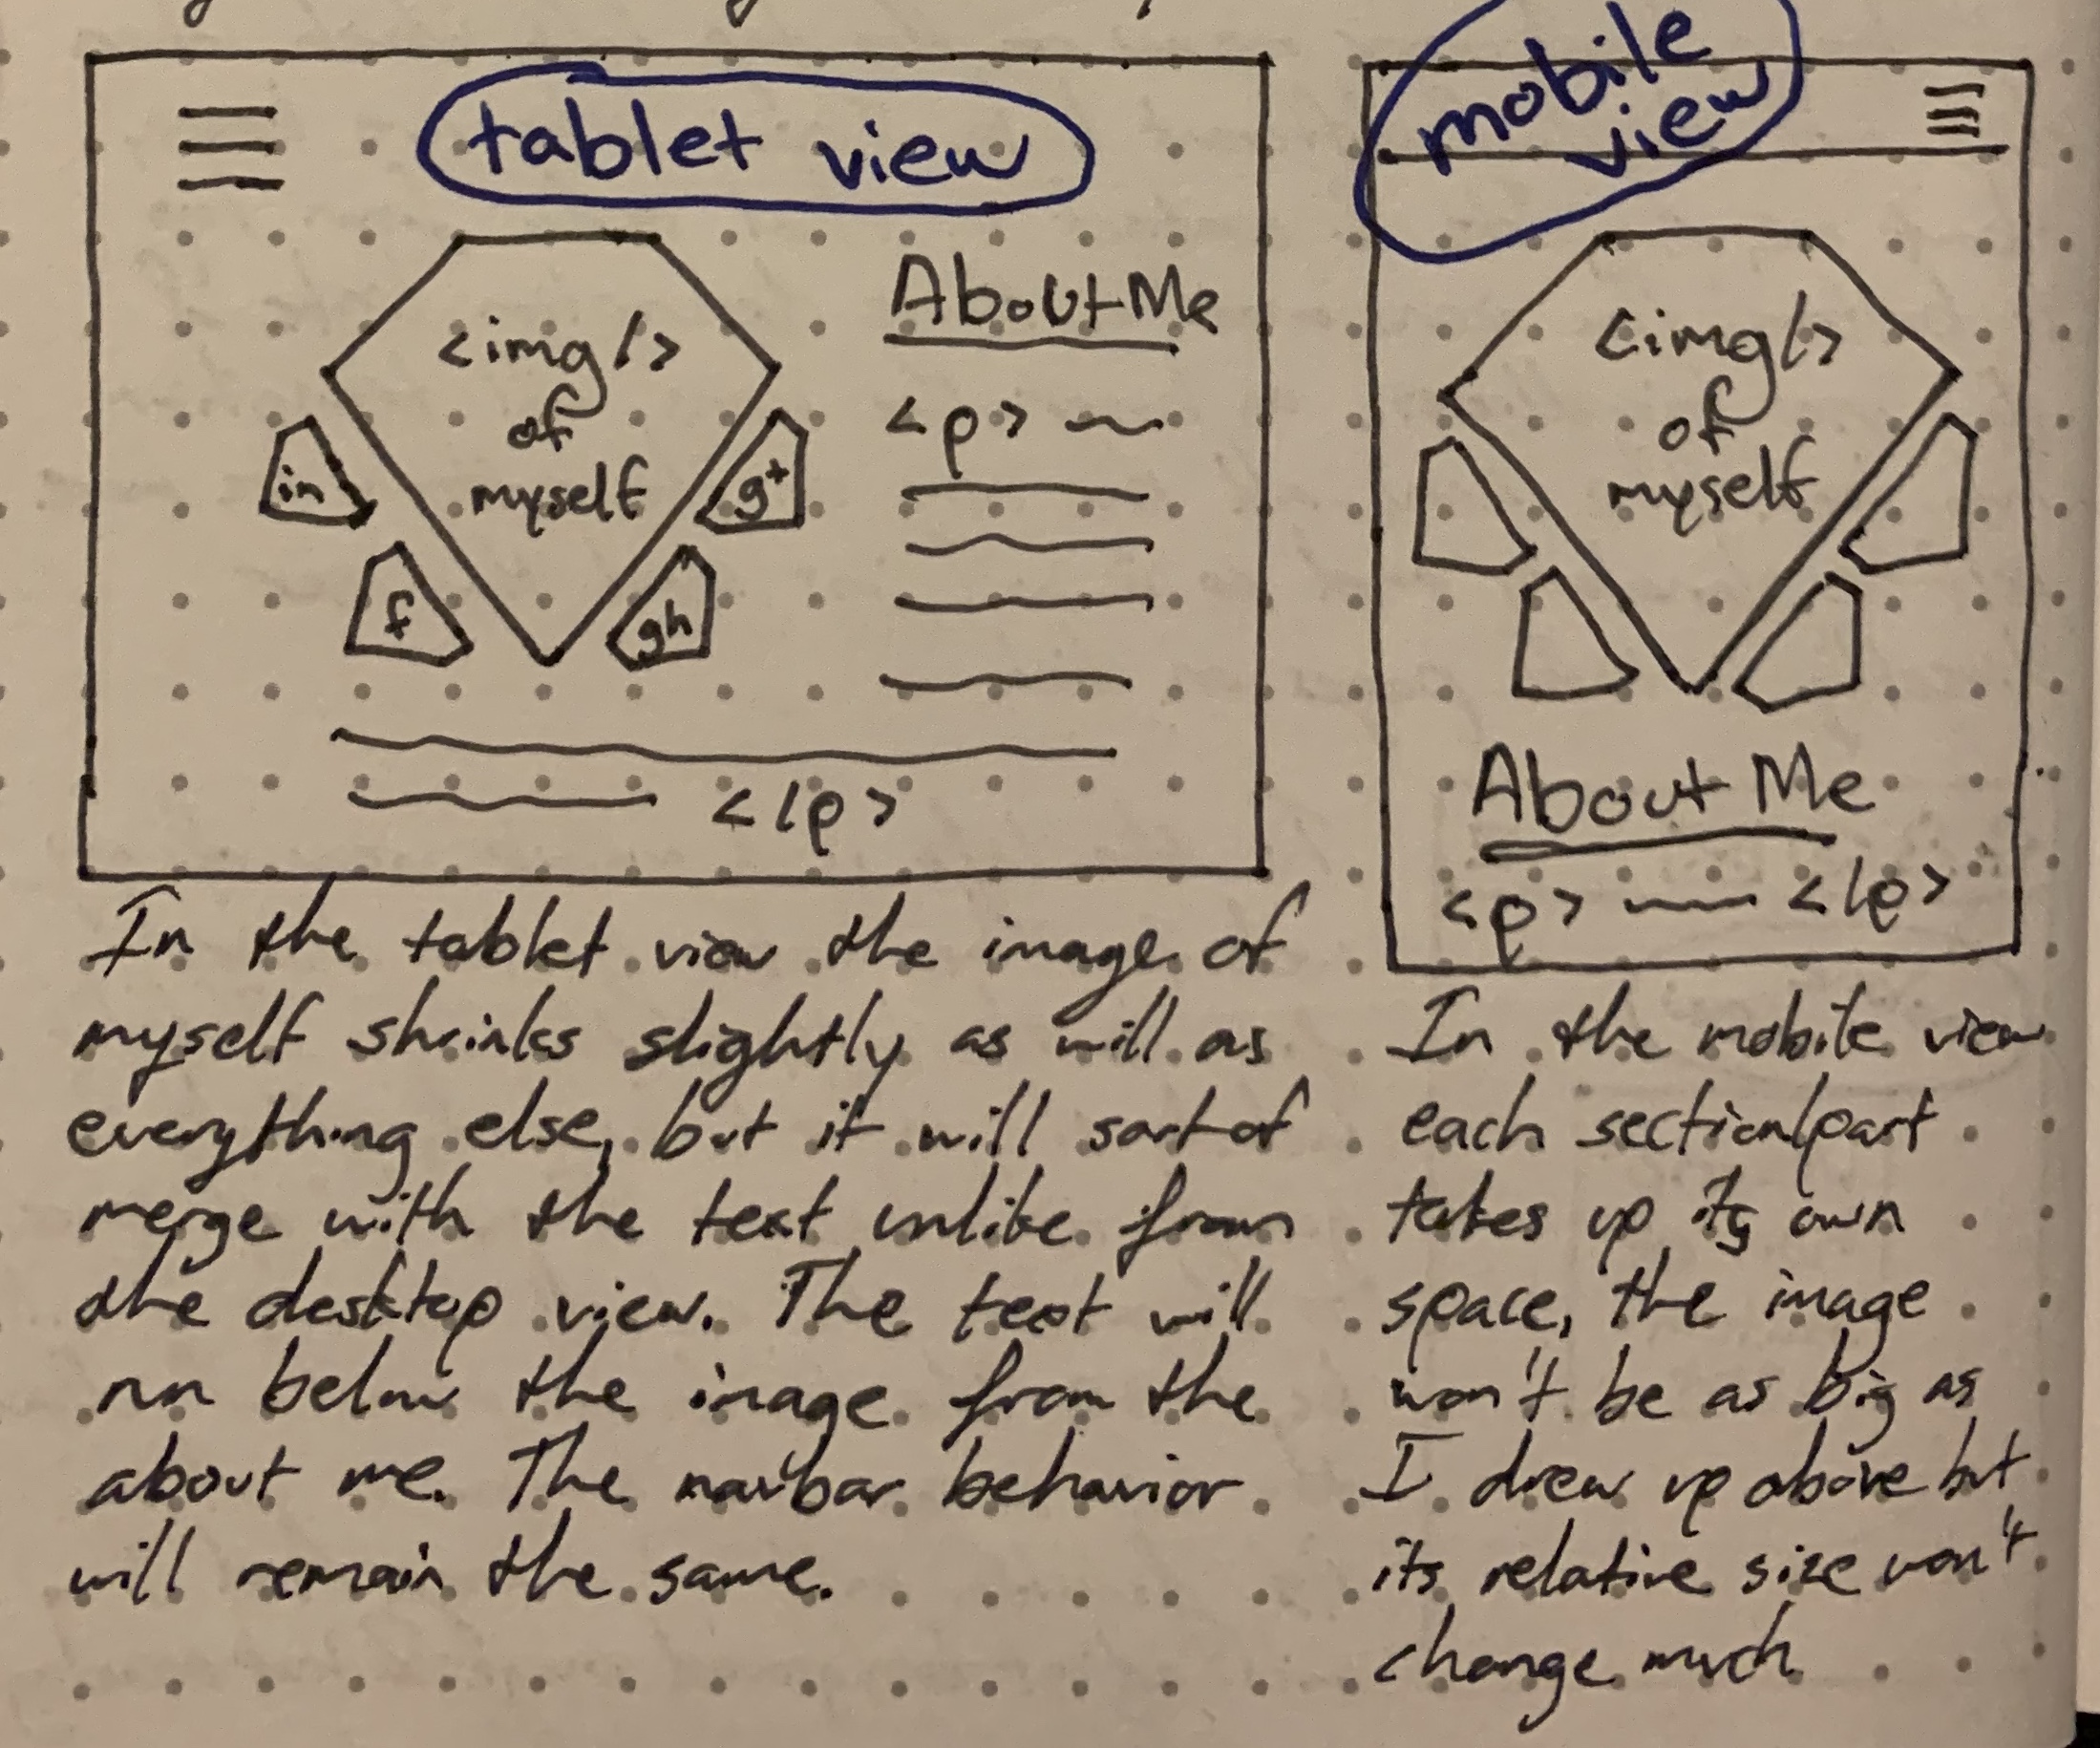 tablet view
<img/>
of
myself
in
f
g+
gh
About Me
<p>
</p>
In the tablet view the image of
myself shrinks slightly as will as
everything else, but it will sort of
merge with the text unlike from
the desktop view. The text will
run below the image from the
about me. The navbar behavior
will remain the same.
mobile
view
<img/>
of
myself
About Me
<p> </p>
In the mobile view
each section/part
takes up its own
space, the image
won't be as big as
I drew up above but
its relative size won't
change much